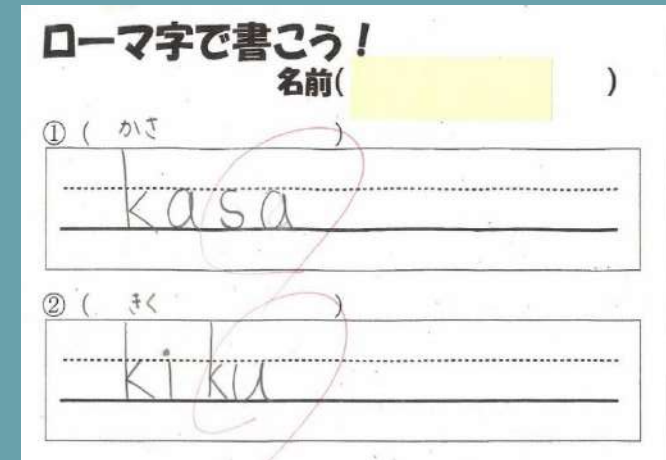 ローマ字で書こう!
名前( )
① ( かさ )
kasa
② ( きく )
kiku